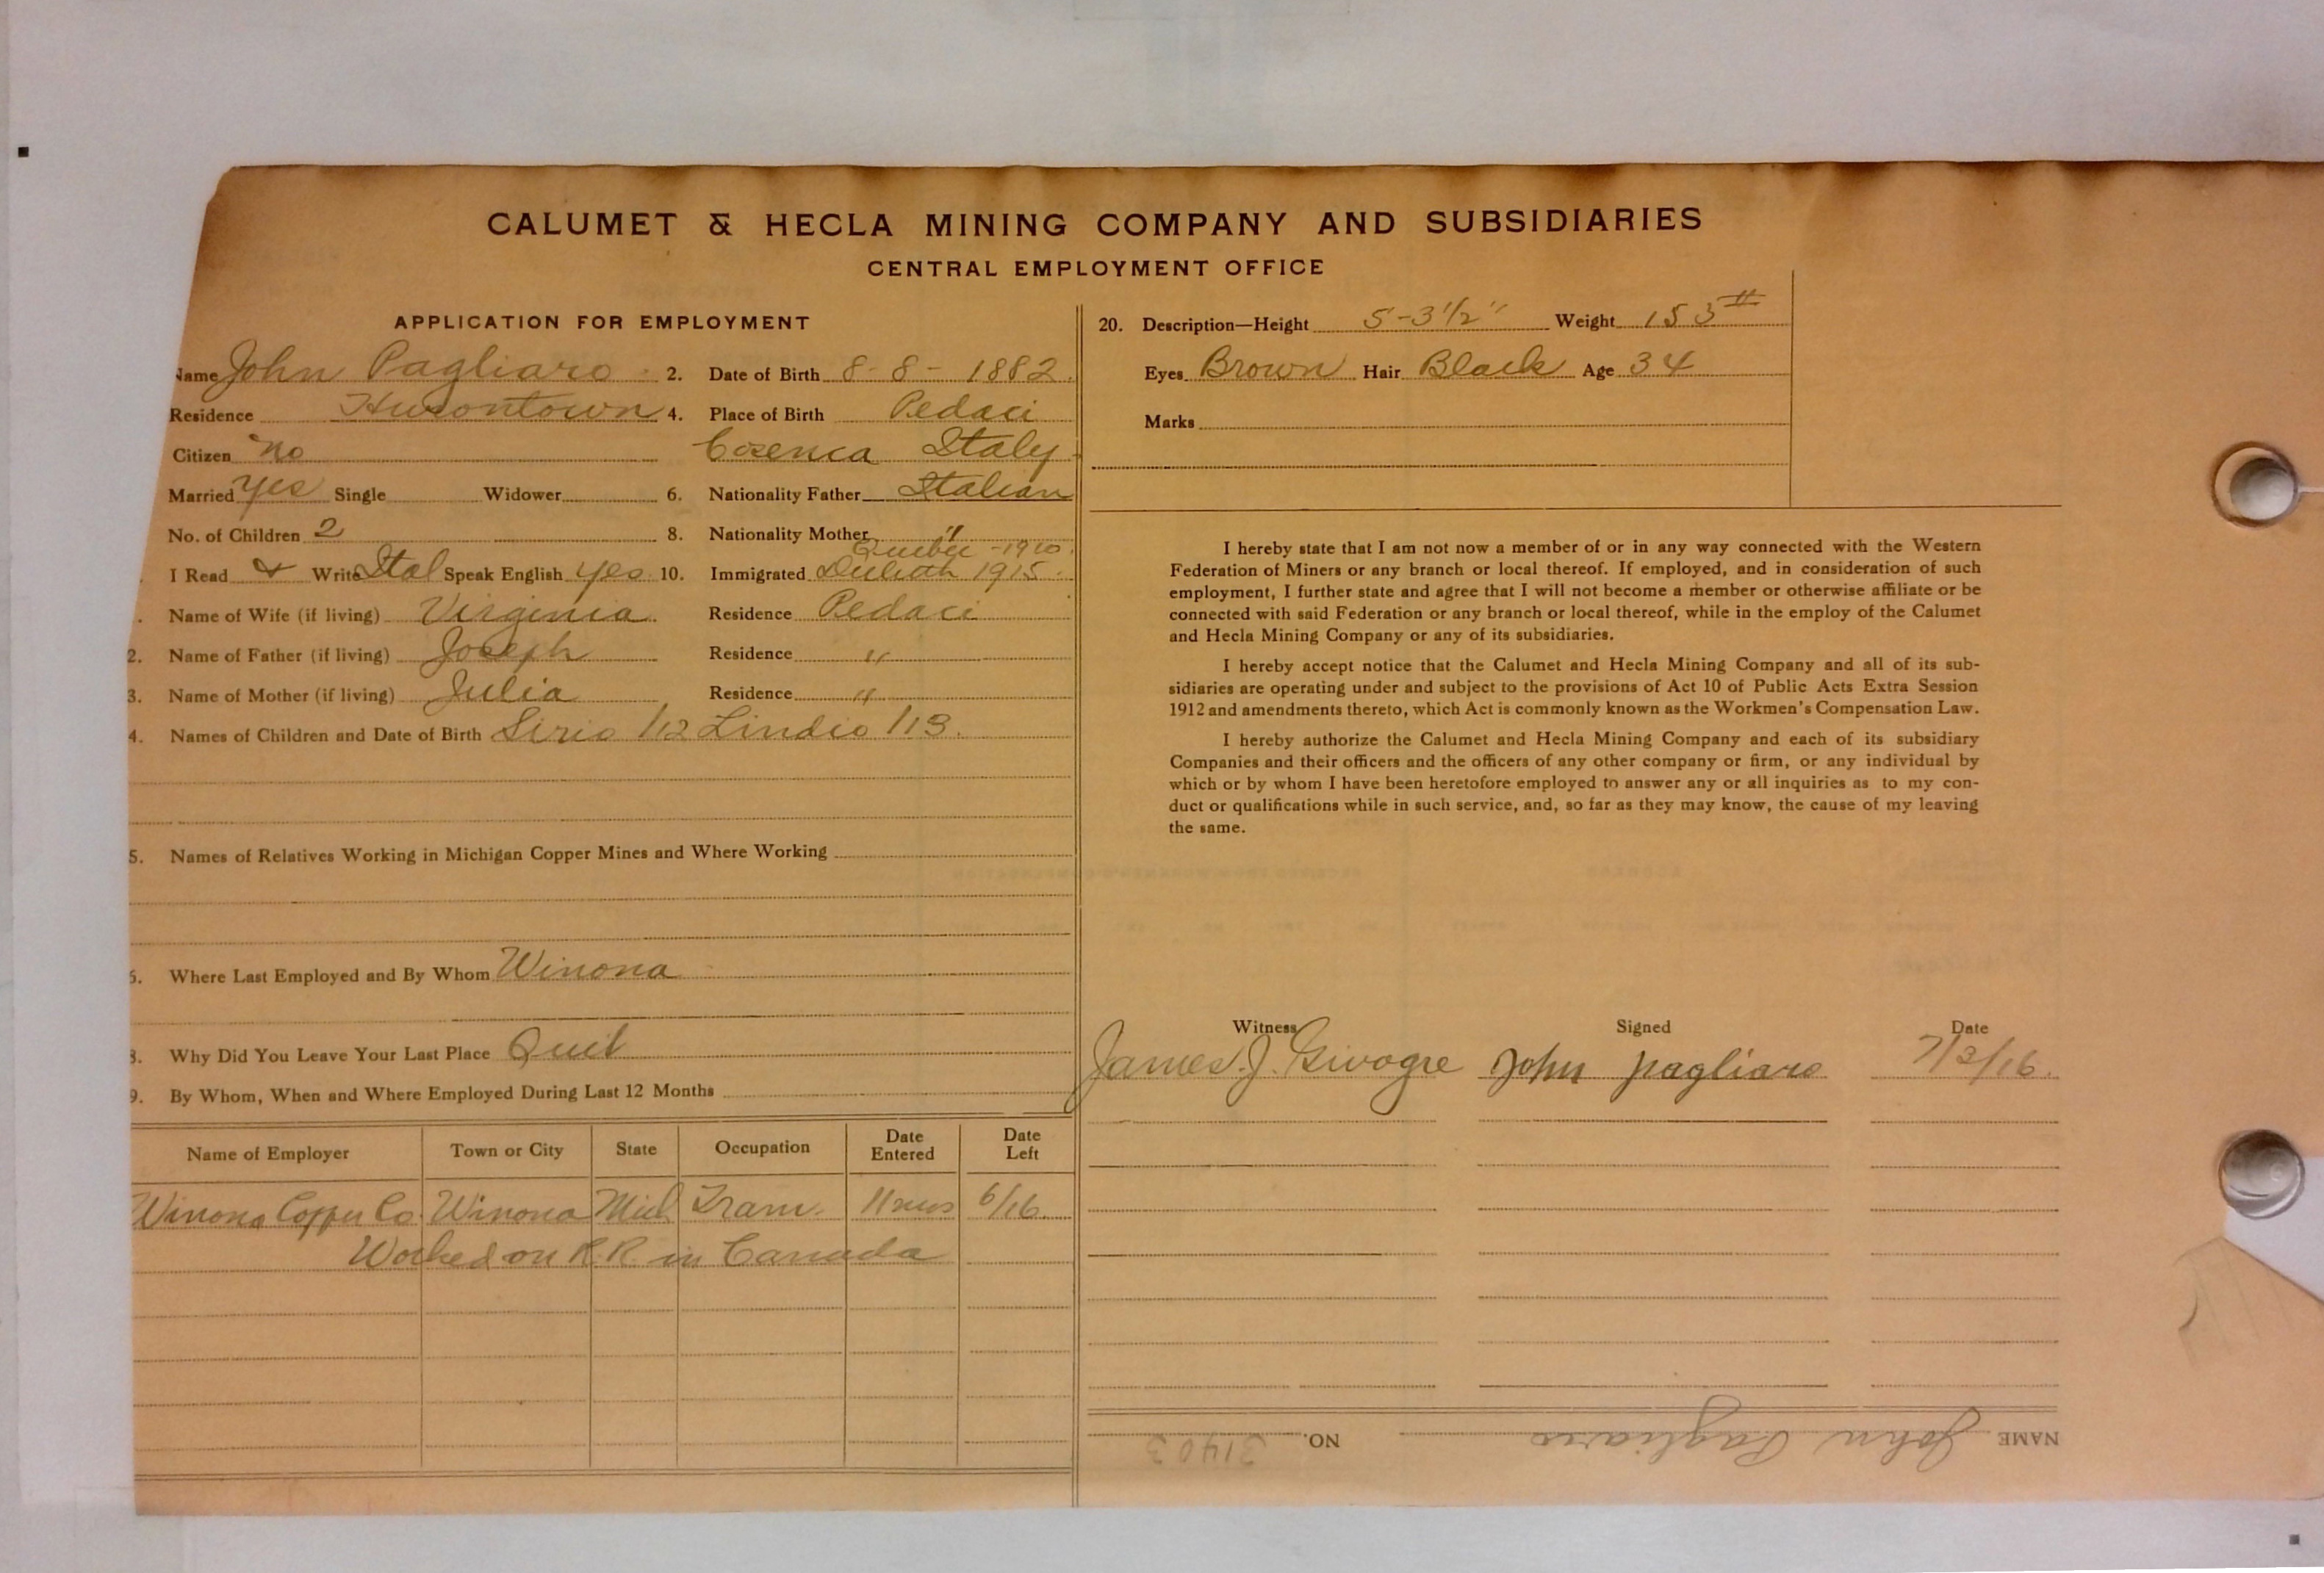 CALUMET & HECLA MINING COMPANY AND SUBSIDIARIES
CENTRAL EMPLOYMENT OFFICE
APPLICATION FOR EMPLOYMENT
Name John Pagliaro 2. Date of Birth 8-8-1882
Residence Hurontown 4. Place of Birth Pedaci
Citizen no Cosenca Italy
Married yes Single Widower 6. Nationality Father Italian
No. of Children 2 8. Nationality Mother "
Quebec -1910.
I Read & Write Ital Speak English yes 10. Immigrated Duluth 1915.
Name of Wife (if living) Virginia Residence Pedaci
2. Name of Father (if living) Joseph Residence "
3. Name of Mother (if living) Julia Residence "
4. Names of Children and Date of Birth Sirio 1/12 Lindio 1/13.
5. Names of Relatives Working in Michigan Copper Mines and Where Working
6. Where Last Employed and By Whom Winona
8. Why Did You Leave Your Last Place Quit
9. By Whom, When and Where Employed During Last 12 Months
Name of Employer Town or City State Occupation Date Entered Date Left
Winona Copper Co. Winona Mich Tram. 11 mos 6/16.
Worked on R.R. in Canada
20. Description—Height 5-3½" Weight 153#
Eyes Brown Hair Black Age 34
Marks
I hereby state that I am not now a member of or in any way connected with the Western
Federation of Miners or any branch or local thereof. If employed, and in consideration of such
employment, I further state and agree that I will not become a member or otherwise affiliate or be
connected with said Federation or any branch or local thereof, while in the employ of the Calumet
and Hecla Mining Company or any of its subsidiaries.
I hereby accept notice that the Calumet and Hecla Mining Company and all of its sub-
sidiaries are operating under and subject to the provisions of Act 10 of Public Acts Extra Session
1912 and amendments thereto, which Act is commonly known as the Workmen's Compensation Law.
I hereby authorize the Calumet and Hecla Mining Company and each of its subsidiary
Companies and their officers and the officers of any other company or firm, or any individual by
which or by whom I have been heretofore employed to answer any or all inquiries as to my con-
duct or qualifications while in such service, and, so far as they may know, the cause of my leaving
the same.
Witness Signed Date
James J. Givogre John Pagliaro 7/3/16.
NAME John Pagliaro NO. 31403